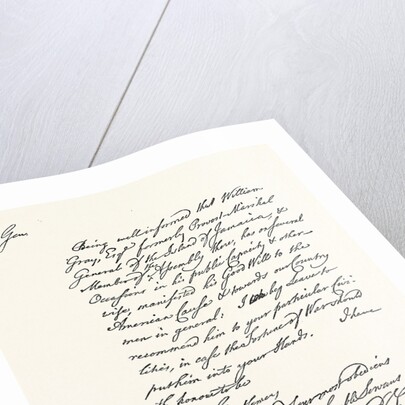 Gen
Being well informed that William
Gray, Esqr formerly Provost-Marshal
General of the Island of Jamaica, &
Member of ye Assembly there, has on several
Occasions in his public Capacity & other
wise, manifested his Good Will to the
American Cause & towards our Country
men in general: I by Leave to
recommend him to your particular Civi-
lities, in case the Fortune of War should
put him into your Hands. I have
the honour to be
most obedient